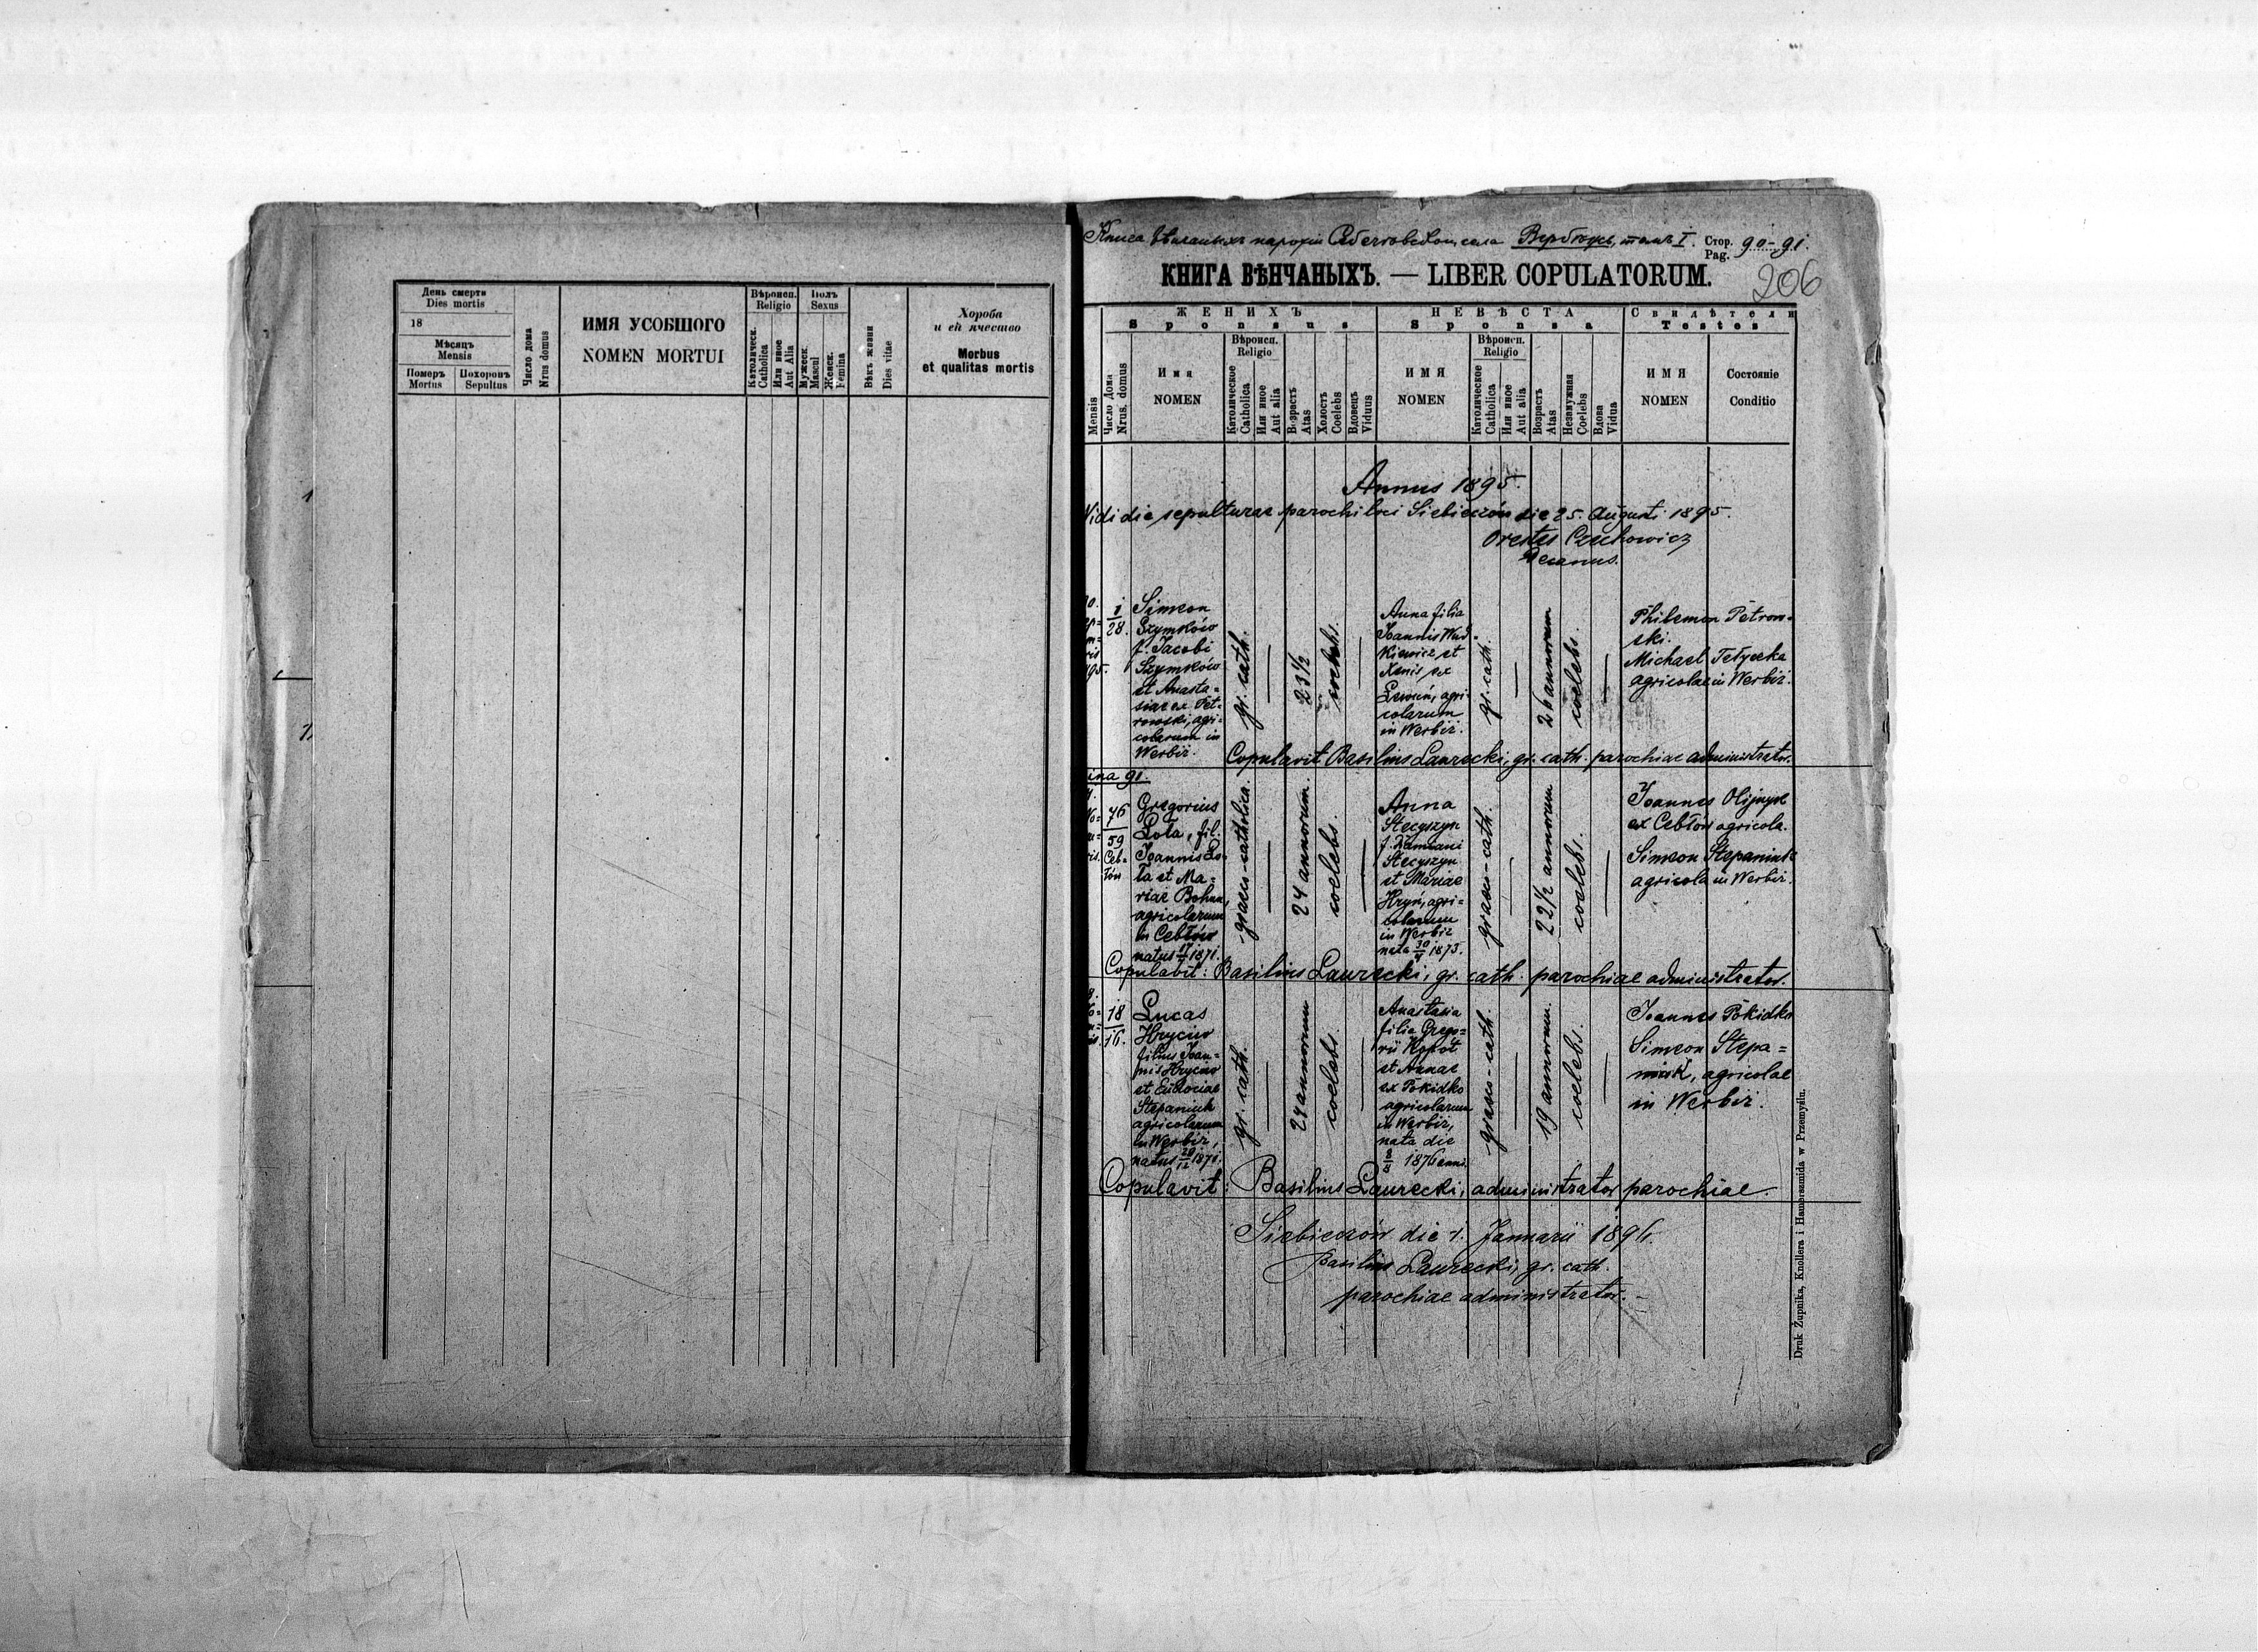 День смерти
Dies mortis
18
Мѣсяцъ
Mensis
Померъ
Mortus
Похоронъ
Sepultus
Число дома
Nrus domus
ИМЯ УСОБШОГО
NOMEN MORTUI
Вѣроисп.
Religio
Католическ.
Catholica
Или иное
Aut Alia
Полъ
Sexus
Мужеск.
Mascul
Женск.
Femina
Вѣкъ жизни
Dies vitae
Хороба
и ей ячество
Morbus
et qualitas mortis
Книга вѣнчаныхъ парохіи села Вербѣжъ, томъ I. Стор. Pag. 90-91.
КНИГА ВѢНЧАНЫХЪ. — LIBER COPULATORUM.
206
ЖЕНИХЪ
Sponsus
НЕВѢСТА
Sponsa
Свидѣтели
Testes
Mensis
Число Дома
Nrus. domus
Имя
NOMEN
Вѣроисп.
Religio
Католическое
Catholica
Или иное
Aut alia
Возрастъ
Atas
Холостъ
Coelebs
Вдовецъ
Viduus
ИМЯ
NOMEN
Вѣроисп.
Religio
Католическое
Catholica
Или иное
Aut alia
Возрастъ
Atas
Незамужная
Coelebs
Вдова
Vidua
ИМЯ
NOMEN
Состояніе
Conditio
Annus 1895.
Vidi die sepulturae parochi loci Siebieczów die 25. Augusti 1895.
Orestes Czechowicz
Decanus.
28.
Simeon
Szymków
f. Jacobi
Szymków
et Anasta=
siae ex Pet=
rowski, agri=
colarum in
Werbiż.
gr. cath.
23 1/2
coelebs.
Anna filia
Joannis Wud=
kiewicz et
Xenis ex
agri=
colarum
in Werbiż.
gr. cath.
26 annorum
coelebs.
Philemon Petrow=
ski.
Michael Tetycka
agricolae in Werbiż.
Copulavit Basilius Laurecki, gr. cath. parochiae administrator.
ina 91
76
59
Ceb=
łów
Gregorius
Łota, fil.
Joannis Ło=
ta et Ma=
riae Bohun,
agricolarum
in Cebłów
natus 1871.
graeco-catholica.
24 annorum.
coelebs.
Anna
Stecyszyn
f. Damiani
Stecyszyn
et Mariae
Hryń, agri=
colarum
in Werbiż
nata 1873.
graeco-cath.
22 1/2 annorum
coelebs.
Joannes Olijnyk
ex Cebłów agricola.
Simeon Stepaniuk
agricola in Werbiż.
Copulavit: Basilius Laurecki, gr. cath. parochiae administrator.
18
16.
Lucas
Hryciw
filius Joan=
nis Hryciw
et Eudociae
Stepaniuk
agricolarum
in Werbiż,
natus 20/12 1871.
gr. cath.
24 annorum
coelebs.
Anastasia
filia Grego=
rii Kopot
et Annae
ex Pokidko
agricolarum
in Werbiż,
nata die
8/8 1876 anni.
graeco-cath.
19 annorum.
coelebs.
Joannes Pokidko
Simeon Stepa=
niuk, agricolae
in Werbiż.
Copulavit: Basilius Laurecki, administrator parochiae.
Siebieczów die 1. Januarii 1896.
Basilius Laurecki, gr. cath.
parochiae administrator.
Druk Żupnika, Knollera i Hamerszmida w Przemyślu.